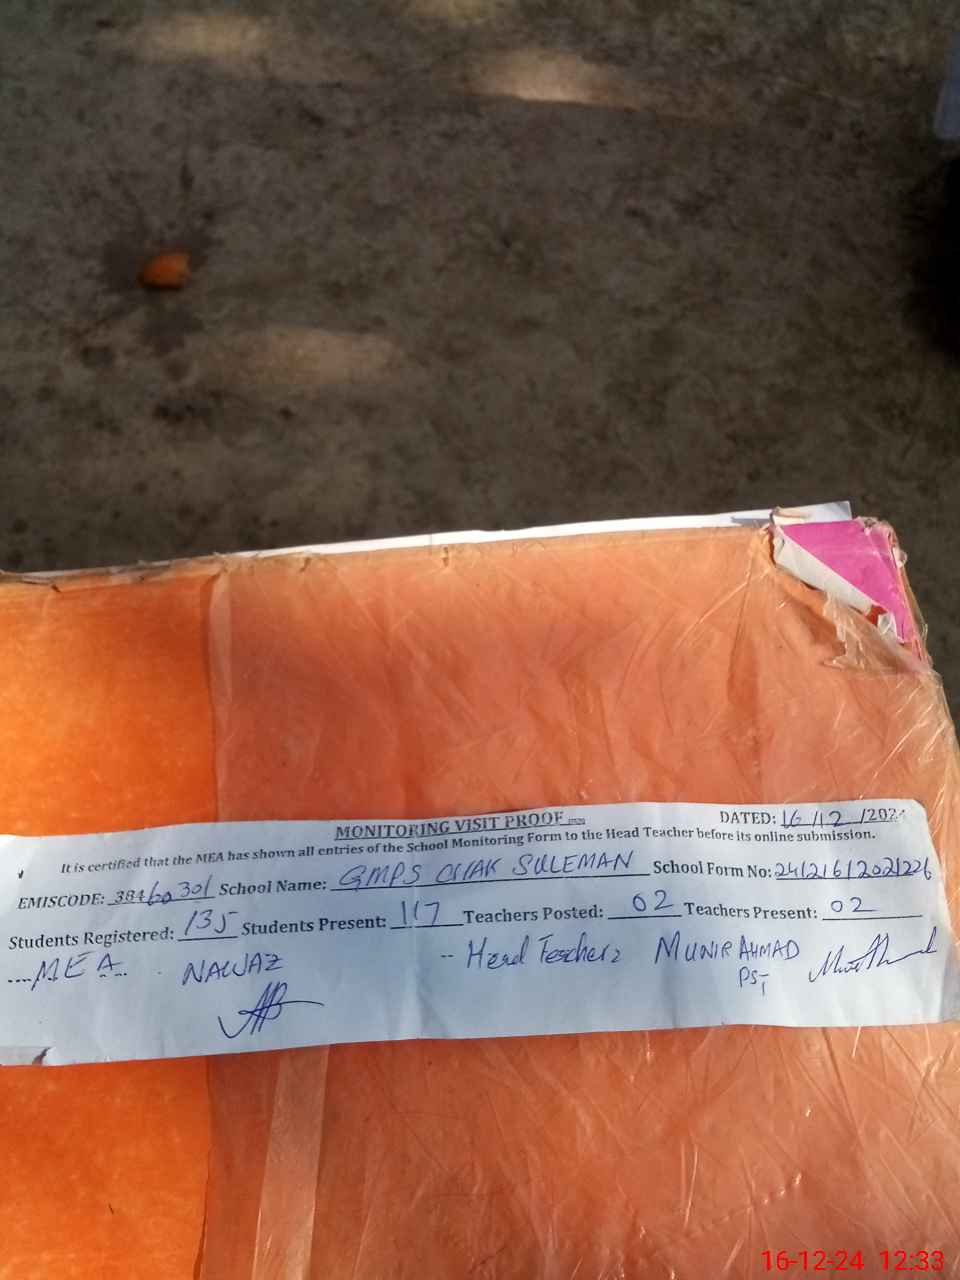 MONITORING VISIT PROOF
DATED: 16/12/2024
It is certified that the MEA has shown all entries of the School Monitoring Form to the Head Teacher before its online submission.
EMISCODE: 38460301 School Name: GMPS CHAK SULEMAN School Form No:
Students Registered: 135 Students Present: 117 Teachers Posted: 02 Teachers Present: 02
MEA NAWAZ Head Teacher MUNIR AHMAD
PST
16-12-24 12:33